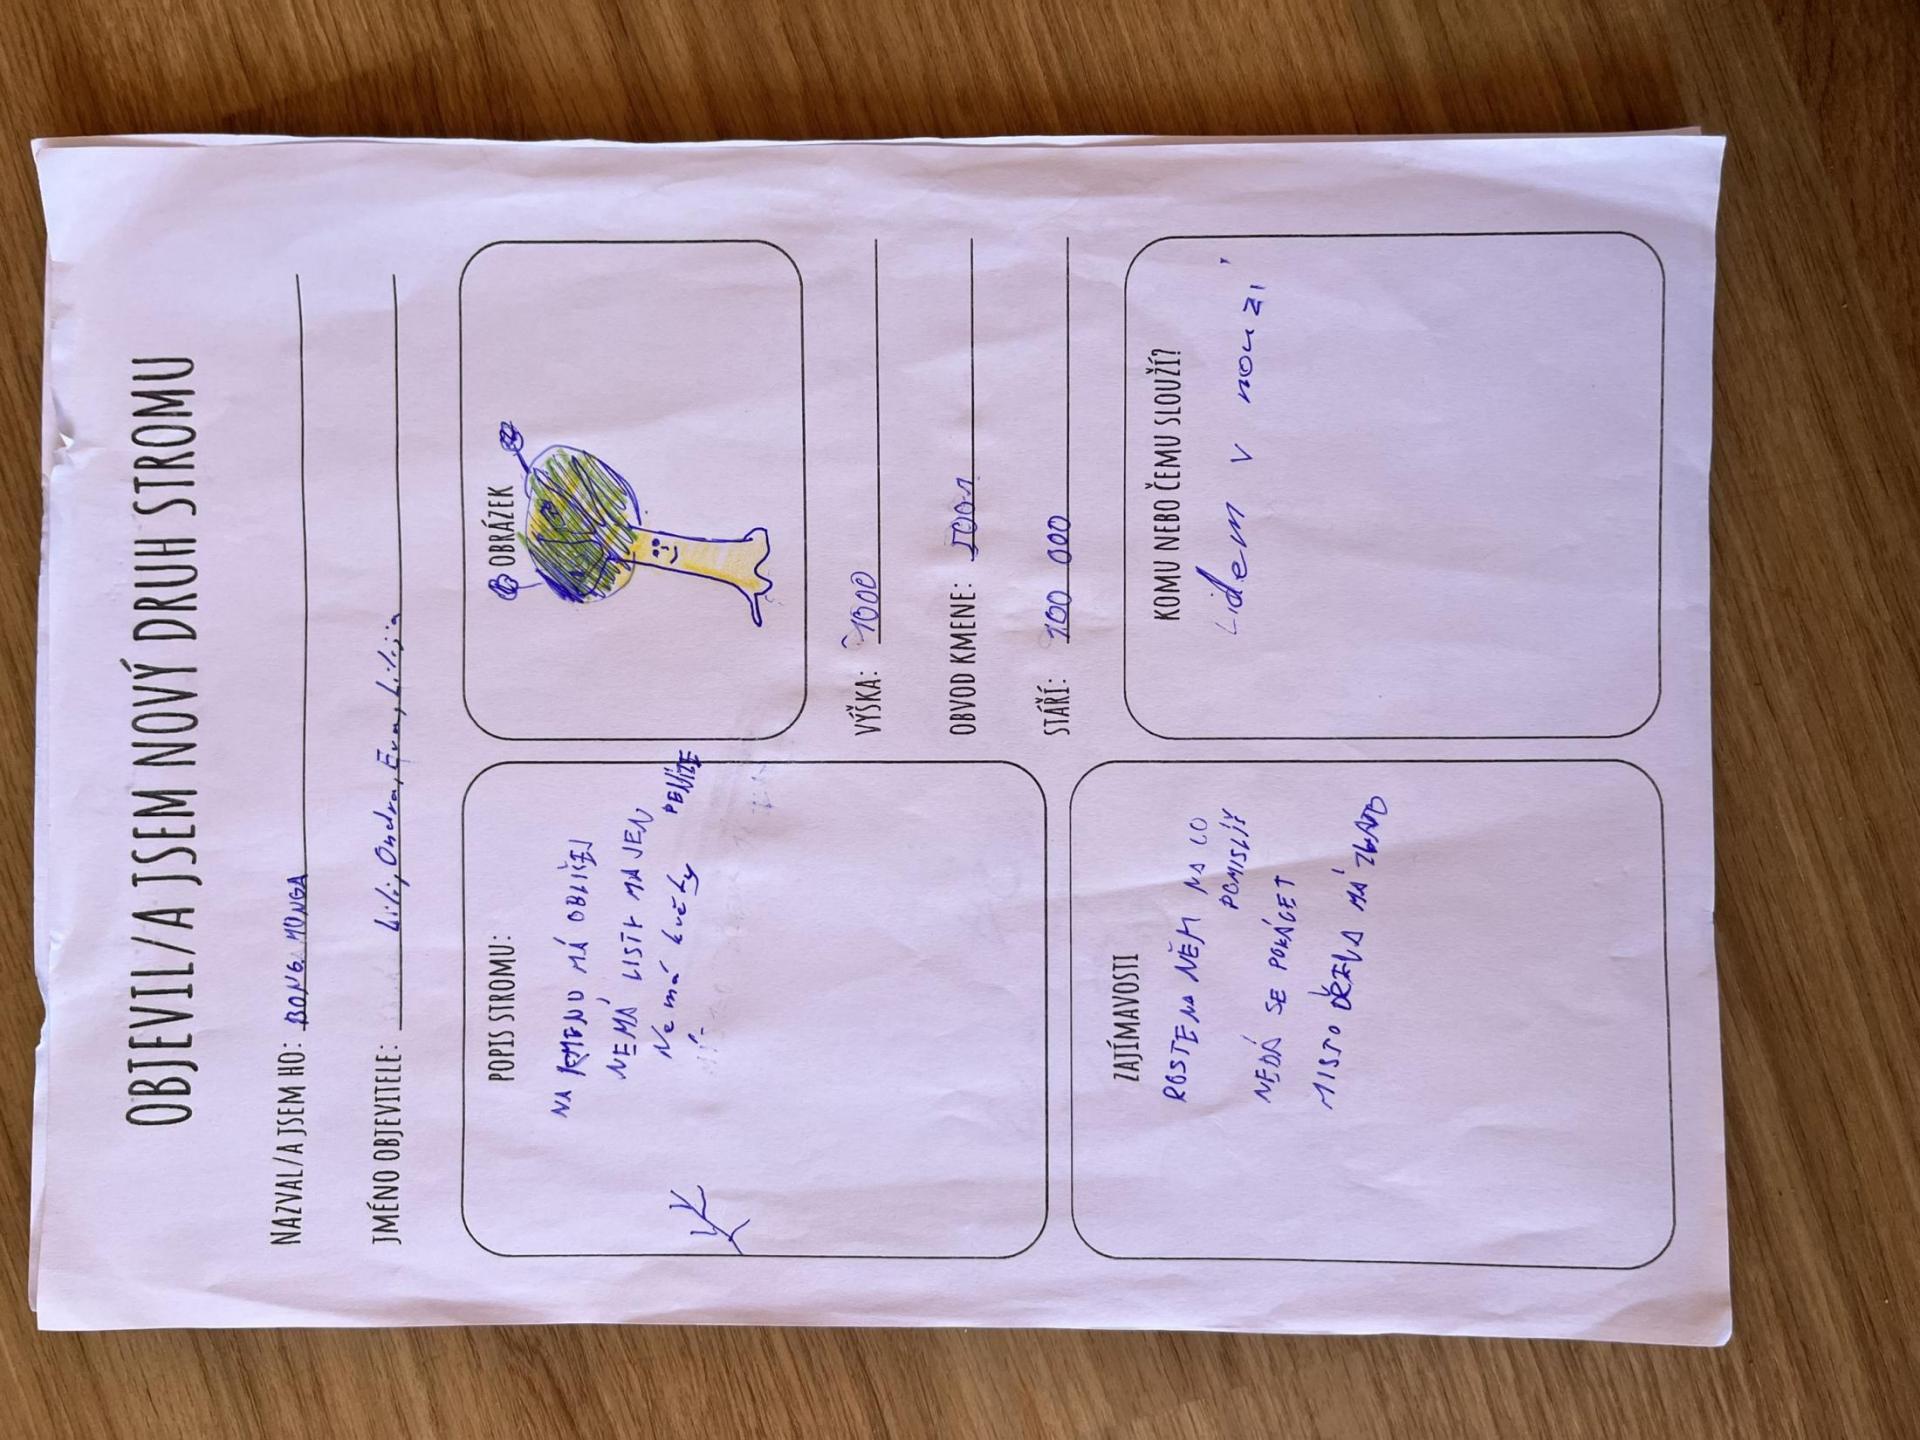 OBJEVIL/A JSEM NOVÝ DRUH STROMU
NAZVAL/A JSEM HO: BONGA MUNGA
JMÉNO OBJEVITELE: Lili, Ondra, Eva, Lilija
POPIS STROMU:
NA KMENU MÁ OBLIČEJ
NEMÁ LISTY MA JEN
PENÍZE
Nemá květy
OBRÁZEK
VÝŠKA: 1000
OBVOD KMENE:
STÁŘÍ: 100 000
ZAJÍMAVOSTI
ROSTE NA NĚM NA CO
POMISLÍŠ
NEDÁ SE POKÁCET
MISTO MÁ ZLATO
KOMU NEBO ČEMU SLOUŽÍ?
Lidem v nouzi